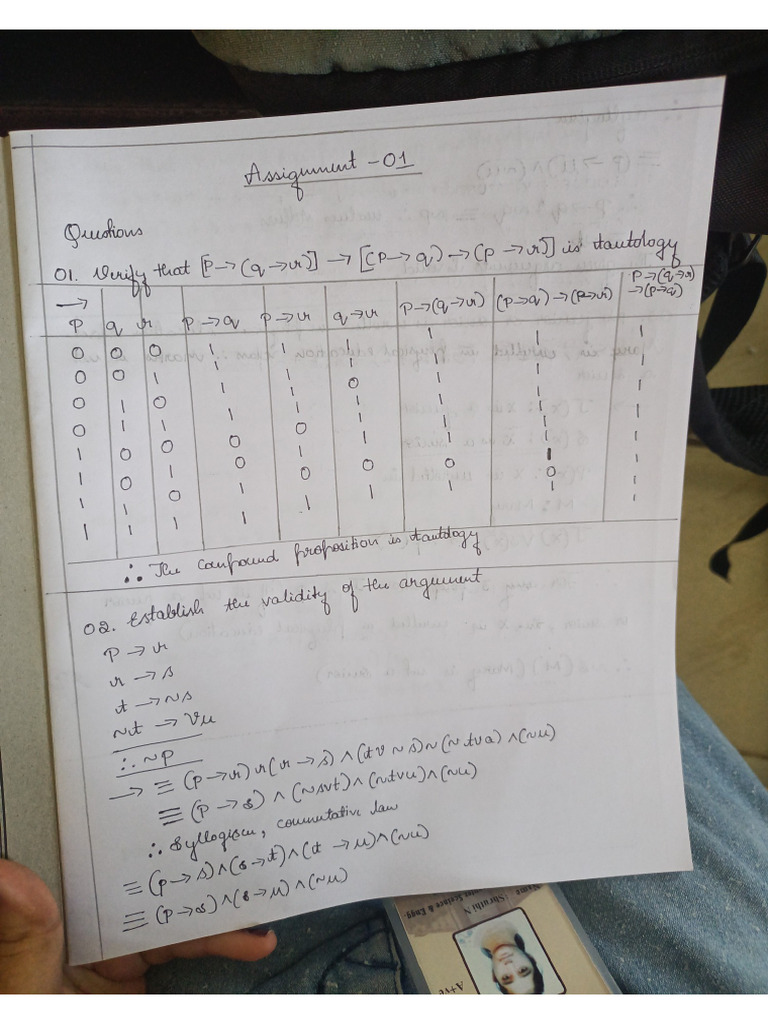 Assignment - 01
Questions
01. Verify that [P→(q→r)] → [(P→q)→(p→r)] is tautology
→
P q r P→q P→r q→r P→(q→r) (P→q)→(P→r) P→(q→r)→(P→q)
0 0 0 1 1 1 1 1 1
0 0 1 1 1 1 1 1 1
0 1 0 1 1 0 1 1 1
0 1 1 1 1 1 1 1 1
1 0 0 0 0 1 1 1 1
1 0 1 0 1 1 1 1 1
1 1 0 1 0 0 0 0 1
1 1 1 1 1 1 1 1 1
∴ The compound proposition is tautology
02. Establish the validity of the argument
P → r
r → s
t → ~s
~t → Vu
∴ ~P
→ ≡ (P→r) r (r→s) ∧ (t v ~s) ~ (~t v a) ∧ (~u)
≡ (P→s) ∧ (~s v t) ∧ (~t v u) ∧ (~u)
∴ Syllogism, commutative law
≡ (P→s) ∧ (s→t) ∧ (t→u) ∧ (~u)
≡ (P→s) ∧ (s→u) ∧ (~u)
Name : Shruthi N
Science & Engg.
A+ve